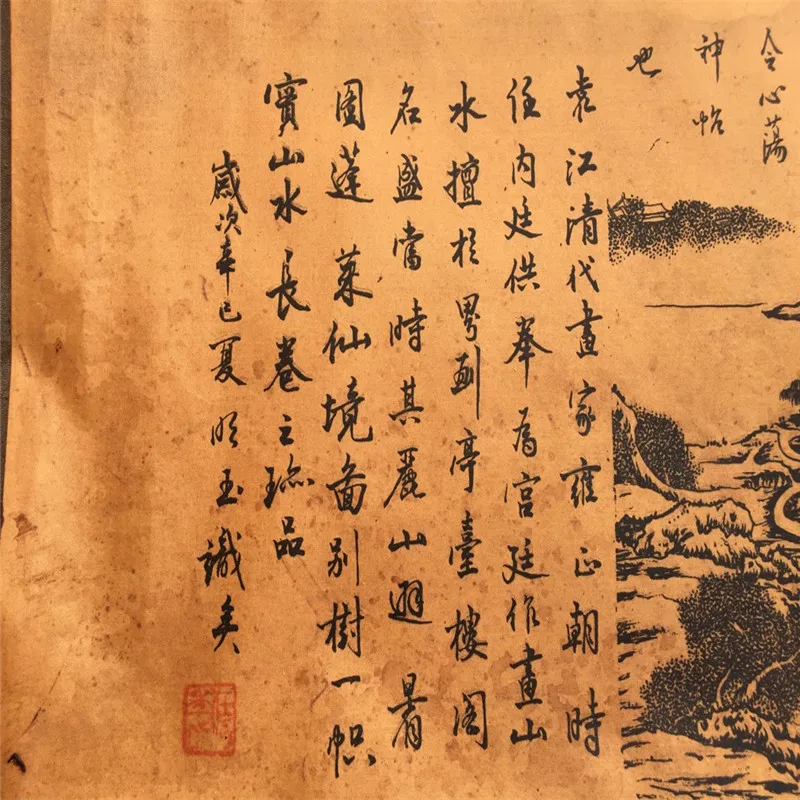 令心蕩
神怡
也
袁江清代畫家雍正朝時
任内廷供奉為宮廷作畫山
水擅於界劃亭臺樓閣
名盛當時其麗山避暑
圖蓬萊仙境圖別樹一幟
實山水長卷之珍品
歲次辛巳夏明玉識矣